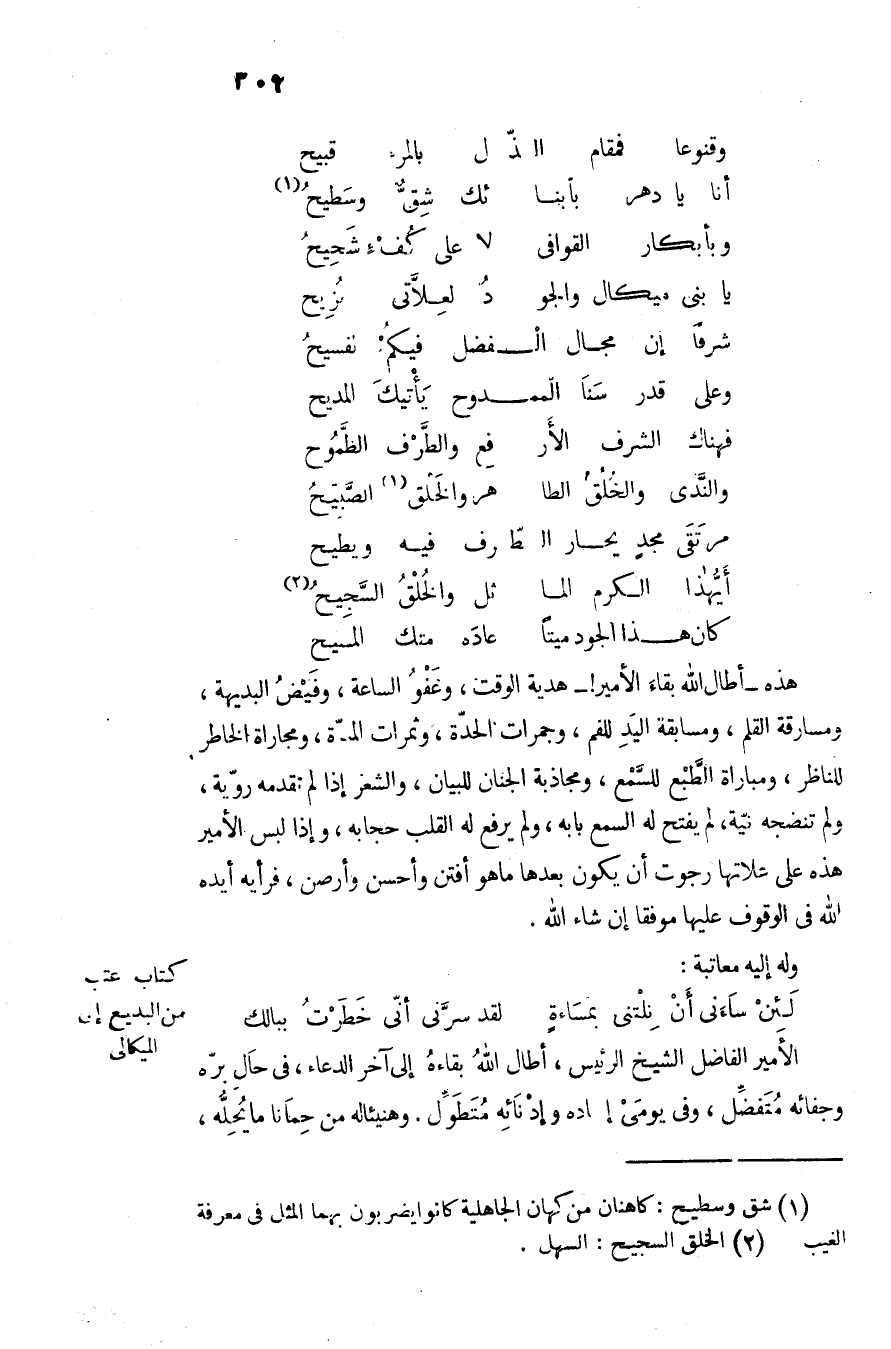 ٣٠٩
وقنوعا فمقام الذّل بالمرء قبيح
أنا يا دهر بأبنائك شِقٌّ وسَطيحُ (١)
وبأبكار القوافى لا على كُفْءٍ شَحِيحُ
يا بنى ميكال والجودُ لعِلاَّتى نُزِيح
شرفاً إن مجال الْفضل فيكمُ نفسيحُ
وعلى قدر سَنَا الممدوح يَأْتيكَ المديح
فهناك الشرف الأَرفع والطَّرْف الطَّمُوح
والنَّدى والخُلُقُ الطاهر والخَلْق (١) الصَّبِيحُ
مرتَقَى مجدٍ يحار الطّرف فيه ويطيح
أَيُّهٰذا الكرم الماثل والخُلْقُ السَّجِيحُ (٢)
كان هذا الجود ميتاً عادَه منك المسيح
هذه ــ أطال الله بقاءَ الأمير! ــ هدية الوقت ، وعَفْوُ الساعة ، وفَيْضُ البديهة ،
ومسارقة القلم ، ومسابقة اليَدِ للفم ، وجمرات الحدّة ، وثمرات المدّة ، ومجاراة الخاطر
للناظر ، ومباراة الطَّبْع للسَّمْع ، ومجاذبة الجنان للبيان ، والشعر إذا لم تقدمه رويّة ،
ولم تنضجه نيّة، لم يفتح له السمع بابه ، ولم يرفع له القلب حجابه ، وإذا لبس الأمير
هذه على علاتها رجوت أن يكون بعدها ما هو أفتن وأحسن وأرصن ، فرأيه أيده
الله فى الوقوف عليها موفقا إن شاء الله .
وله إليه معاتبة :
كتاب عتب
من البديع إلى
الميكالى
لَئِنْ سَاءَنى أَنْ نِلْتنى بمَسَاءَةٍ لقد سرَّنى أنّى خَطَرْتُ ببالك
الأمير الفاضل الشيخ الرئيس ، أطال اللهُ بقاءهُ إلى آخر الدعاء ، فى حاَلِ برّه
وجفائه مُتَفضِّل ، وفى يومَىْ إبعاده وإدْنَائِه مُتَطَوِّل . وهنيئاله من حِمَانا ما يُحِلُّه ،
(١) شق وسطيح : كاهنان من كهان الجاهلية كانوا يضربون بهما المثل فى معرفة
الغيب (٢) الخلق السجيح : السهل .